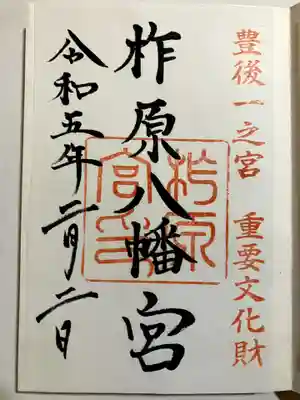 豊後一之宮 重要文化財
柞原八幡宮
令和五年二月二日